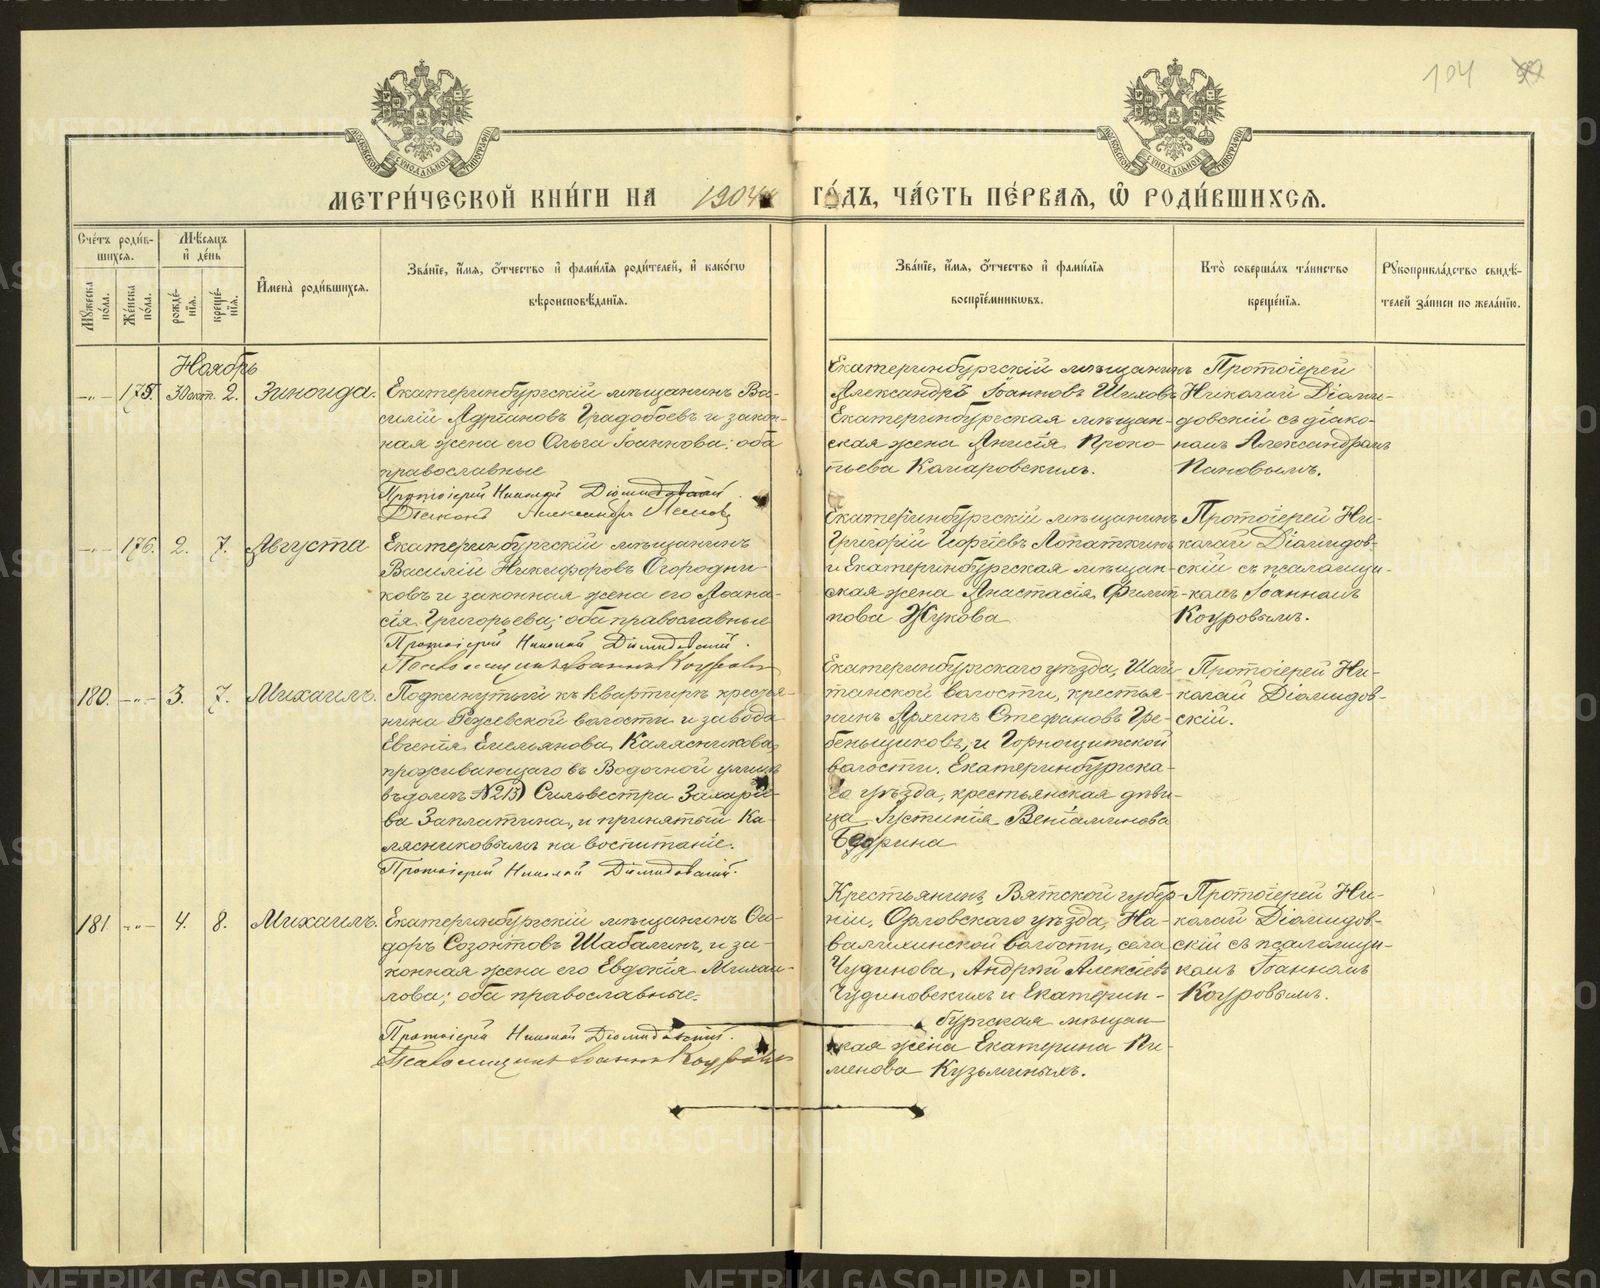 104
МОСКОВСКОЙ СѴНОДАЛЬНОЙ ТИПОГРАФІИ
МОСКОВСКОЙ СѴНОДАЛЬНОЙ ТИПОГРАФІИ
МЕТРИ́ЧЕСКОЙ КНИ́ГИ НА 1904 ГО́ДЪ, ЧА́СТЬ ПЕ́РВАЯ, Ѡ РОДИ́ВШИХСЯ.
Сче́тъ роди́в-
шихся.
Мꙋ́жеска по́ла.
Же́нска по́ла.
Мѣ́сяцъ и де́нь
рожде́-
нія.
креще́-
нія.
Имена̀ роди́вшихся.
Зва́ніе, и́мя, о́тчество и фами́лія роди́телей, и како́гѡ
вѣроисповѣ́данія.
Зва́ніе, и́мя, о́тчество и фами́лія
воспріе́мникѡвъ.
Кто̀ соверша́лъ та́инство
креще́нія.
Рꙋкоприкла́дство свидѣ́-
телей за́писи по жела́нію.
Ноябрь
-„- 175. 30 окт. 2. Зинаида.
Екатеринбургскій мѣщанинъ Ва-
силій Адріановъ Градобоевъ и закон-
ная жена его Ольга Іоаннова; оба
православные
Протоіерей Николай Діомидовскій
Діаконъ Александръ
Екатеринбургскій мѣщанинъ
Александръ Іоанновъ Шиховъ
Екатеринбургская мѣщан-
ская жена Анисія Проко-
пьева Комаровскихъ.
Протоіерей
Николай Діоми-
довскій съ діако-
номъ Александромъ
Пановымъ.
-„- 176. 2. 7. Августа
Екатеринбургскій мѣщанинъ
Василій Никифоровъ Огородни-
ковъ и законная жена его Аѳана-
сія Григорьева; оба православные
Протоіерей Николай Діомидовскій.
Псаломщикъ Іоаннъ Коуровъ
Екатеринбургскій мѣщанинъ
Григорій Георгіевъ Лопаткинъ
и Екатеринбургская мѣщан-
ская жена Анастасія Филип-
пова Жукова
Протоіерей Ни-
колай Діомидов-
скій съ псаломщи-
комъ Іоанномъ
Коуровымъ.
180. -„- 3. 7. Михаилъ.
Подкинутый къ квартирѣ кресть-
янина Режевской волости и завода
Евгенія Емельянова Калясникова,
проживающаго въ Водочной улицѣ
въ домѣ № 213) Сильвестра Захаро-
ва Заплатина, и принятый Ка-
лясниковымъ на воспитаніе.
Протоіерей Николай Діомидовскій.
Екатеринбургскаго уѣзда, Шай-
танской волости, крестья-
нинъ Архипъ Стефановъ Гре-
беньщиковъ, и Горнощитской
волости, Екатеринбургска-
го уѣзда, крестьянская дѣви-
ца Іустинія Веніаминова
Бедрина
Протоіерей Ни-
колай Діомидов-
скій.
181 -„- 4. 8. Михаилъ.
Екатеринбургскій мѣщанинъ Ѳе-
доръ Созонтовъ Шабалинъ, и за-
конная жена его Евдокія Михаи-
лова; оба православные.
Протоіерей Николай Діомидовскій.
Псаломщикъ Іоаннъ Коуровъ
Крестьянинъ Вятской губер-
ніи, Орловскаго уѣзда, На-
валихинской волости, села
Чудинова, Андрей Алексѣевъ
Чудиновскихъ и Екатерин-
бургская мѣщан-
ская жена Екатерина Пи-
менова Кузьминыхъ.
Протоіерей Ни-
колай Діомидов-
скій съ псаломщи-
комъ Іоанномъ
Коуровымъ.
METRIKI.GASO-URAL.RU